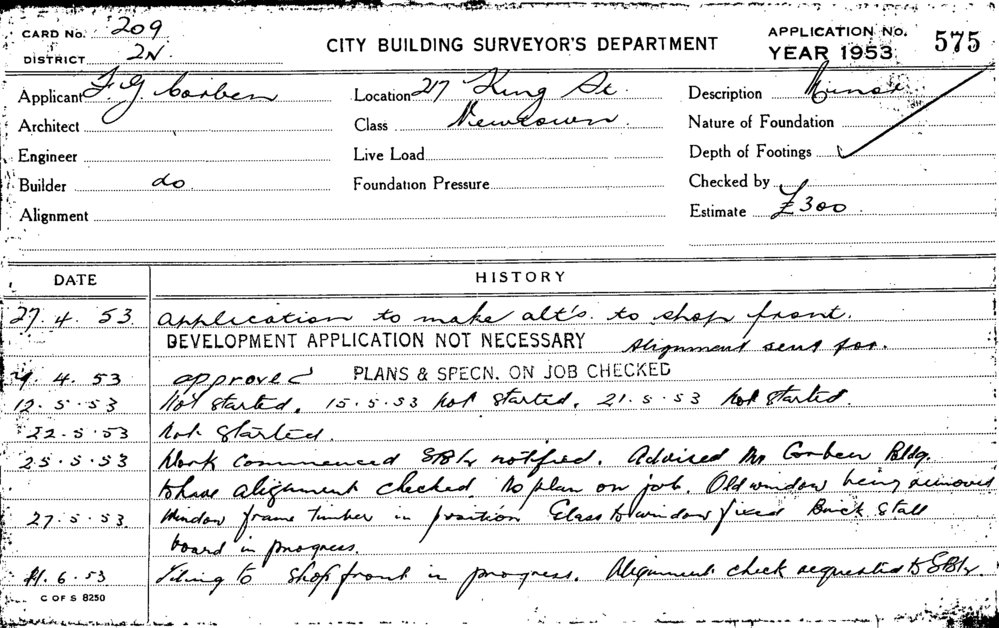 CARD No. 209
DISTRICT 2N
CITY BUILDING SURVEYOR'S DEPARTMENT
APPLICATION No. 575
YEAR 1953
Applicant F. G. Corben
Location 217 King St.
Description Minor
Architect
Class Newtown
Nature of Foundation
Engineer
Live Load
Depth of Footings
Builder do
Foundation Pressure
Checked by
Alignment
Estimate £300
DATE HISTORY
27. 4. 53 Application to make alt's. to shop front.
DEVELOPMENT APPLICATION NOT NECESSARY Alignment sent for.
4. 53 approved PLANS & SPECN. ON JOB CHECKED
12. 5. 53 Not started. 15. 5. 53 Not started. 21. 5. 53 Not started.
22. 5. 53 Not started.
25. 5. 53 Work commenced notified. Advised Mr Corben Bldg.
to have alignment checked. No plan on job. Old window being removed
27. 5. 53. Window frame timber in position Glass to window fixed Brick Stall
board in progress.
6. 53 Tiling to shop front in progress. Alignment check requested to
C OF S 8250